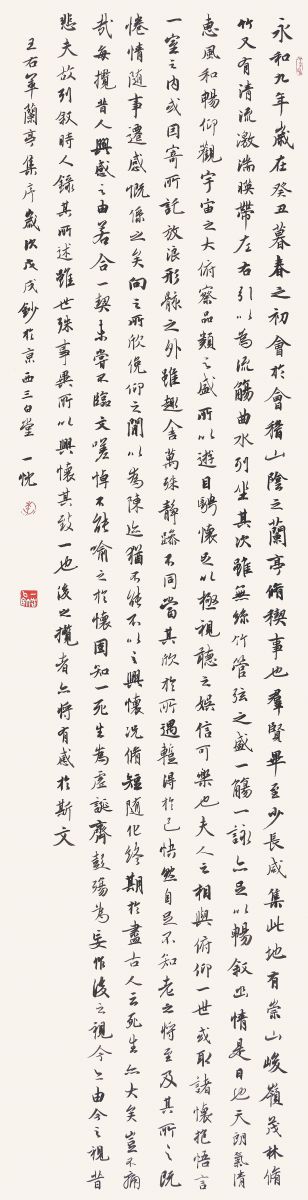 永和九年歲在癸丑暮春之初會於會稽山陰之蘭亭脩稧事也羣賢畢至少長咸集此地有崇山峻嶺茂林脩
竹又有清流激湍暎帶左右引以為流觴曲水列坐其次雖無絲竹管弦之盛一觴一詠亦足以暢敘幽情是日也天朗氣清
惠風和暢仰觀宇宙之大俯察品類之盛所以遊目騁懷足以極視聽之娛信可樂也夫人之相與俯仰一世或取諸懷抱悟言
一室之內或因寄所託放浪形骸之外雖趣舍萬殊靜躁不同當其欣於所遇暫得於己怏然自足不知老之將至及其所之既
惓情隨事遷感慨係之矣向之所欣俛仰之閒以為陳迹猶不能不以之興懷況脩短隨化終期於盡古人云死生亦大矣豈不痛
哉每攬昔人興感之由若合一契未嘗不臨文嗟悼不能喻之於懷固知一死生為虛誕齊彭殤為妄作後之視今亦由今之視昔
悲夫故列敘時人錄其所述雖世殊事異所以興懷其致一也後之攬者亦將有感於斯文
王右軍蘭亭集序歲次戊戌鈔於京西三白堂 一忱